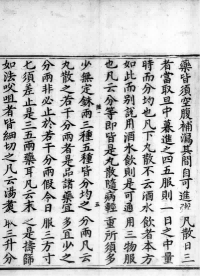 藥皆須空腹補瀉其間自可進粥凡散日三
者當取旦中暮進之四五服則一日之中量
時而分均也凡下丸散不云酒水飲者本方
如此而別說用酒水飲則是可通用三物服
也凡云分等即皆是丸散隨病輕重所須多
少無定銖兩三種五種皆分均之分兩凡云
丸散之若干分兩者是品諸藥宜多宜少之
分兩非必止於若干分兩假令日服三方寸
匕須差止是三五兩藥耳凡云末之是擣篩
如法㕮咀者皆細切之凡云湯煑取三升分